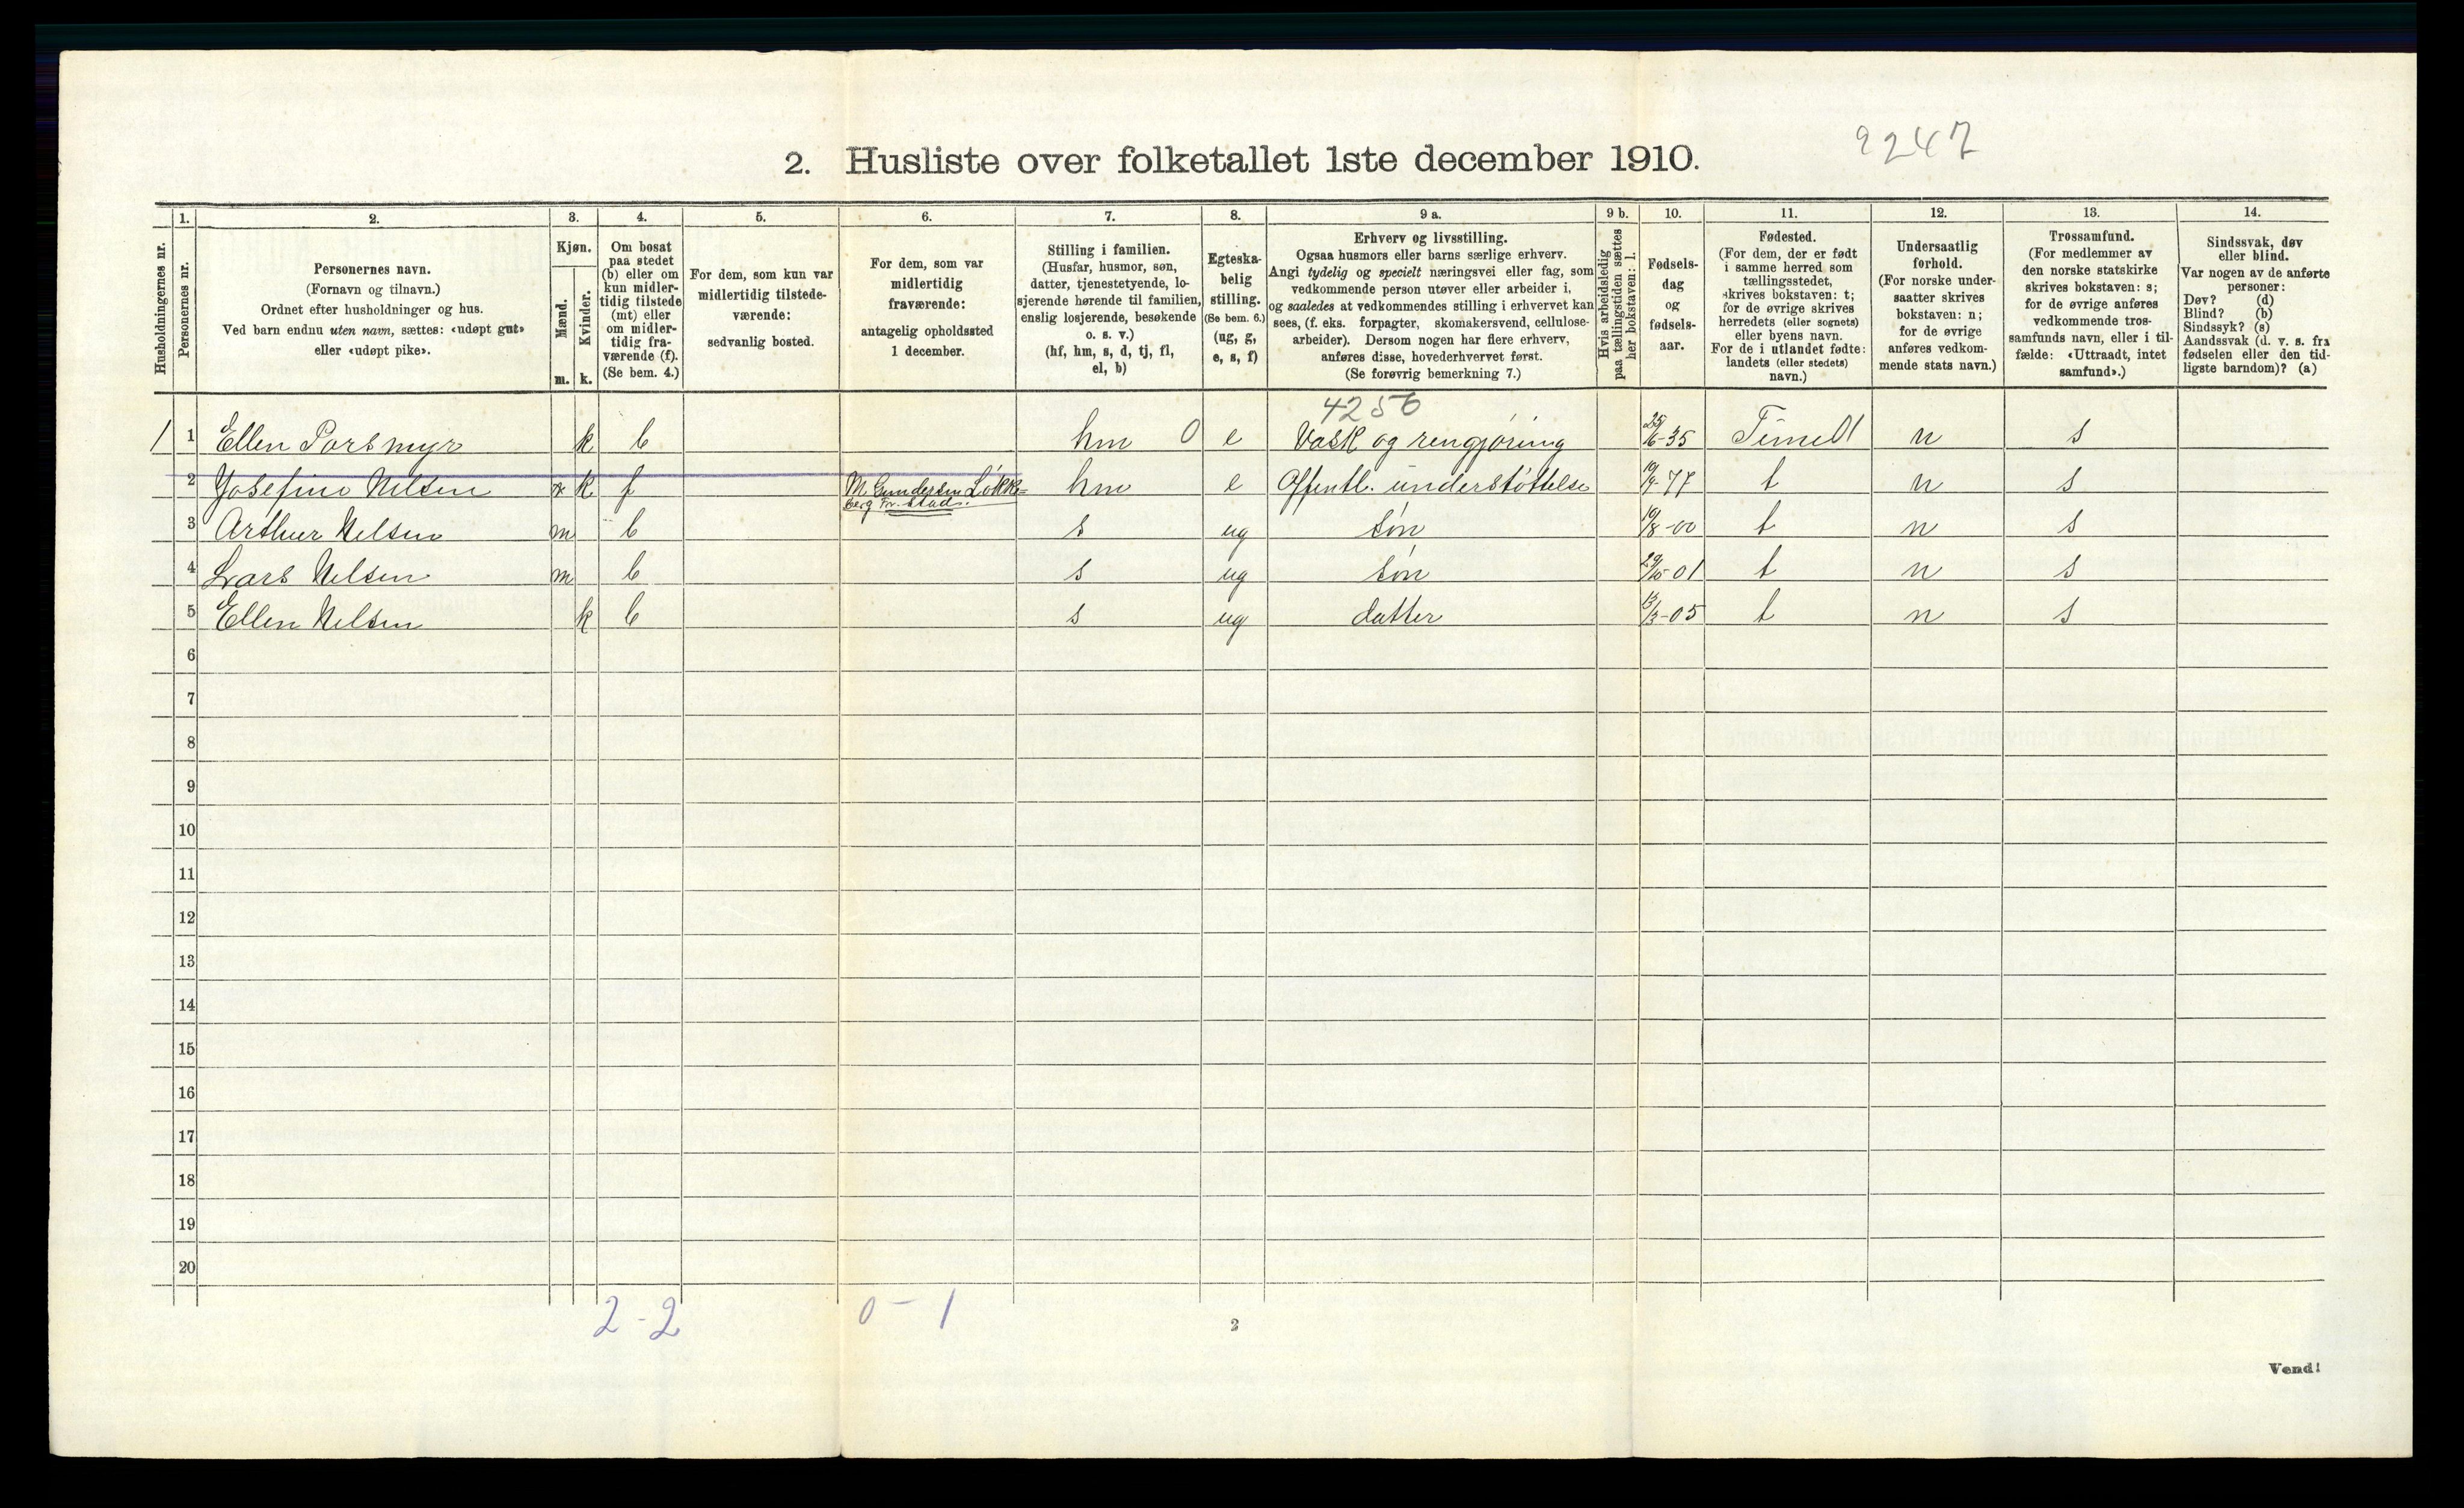 2247
2. Husliste over folketallet 1ste december 1910.
Husholdningernes nr.
1.
Personernes nr.
2.
Personernes navn.
(Fornavn og tilnavn.)
Ordnet efter husholdninger og hus.
Ved barn endnu uten navn, sættes: «udøpt gut»
eller «udøpt pike».
3.
Kjøn.
Mænd.
Kvinder.
m. k.
4.
Om bosat
paa stedet
(b) eller om
kun midler-
tidig tilstede
(mt) eller
om midler-
tidig fra-
værende (f).
(Se bem. 4.)
5.
For dem, som kun var
midlertidig tilstede-
værende:
sedvanlig bosted.
6.
For dem, som var
midlertidig
fraværende:
antagelig opholdssted
1 december.
7.
Stilling i familien.
(Husfar, husmor, søn,
datter, tjenestetyende, lo-
sjerende hørende til familien,
enslig losjerende, besøkende
o. s. v.)
(hf, hm, s, d, tj, fl,
el, b)
8.
Egteska-
belig
stilling.
(Se bem. 6.)
(ug, g,
e, s, f)
9 a.
Erhverv og livsstilling.
Ogsaa husmors eller barns særlige erhverv.
Angi tydelig og specielt næringsvei eller fag, som
vedkommende person utøver eller arbeider i,
og saaledes at vedkommendes stilling i erhvervet kan
sees, (f. eks. forpagter, skomakersvend, cellulose-
arbeider). Dersom nogen har flere erhverv,
anføres disse, hovederhvervet først.
(Se forøvrig bemerkning 7.)
9 b.
Hvis arbeidsledig
paa tællingstiden sættes
her bokstaven: l.
10.
Fødsels-
dag
og
fødsels-
aar.
11.
Fødested.
(For dem, der er født
i samme herred som
tællingsstedet,
skrives bokstaven: t;
for de øvrige skrives
herredets (eller sognets)
eller byens navn.
For de i utlandet fødte:
landets (eller stedets)
navn.)
12.
Undersaatlig
forhold.
(For norske under-
saatter skrives
bokstaven: n;
for de øvrige
anføres vedkom-
mende stats navn.)
13.
Trossamfund.
(For medlemmer av
den norske statskirke
skrives bokstaven: s;
for de øvrige anføres
vedkommende tros-
samfunds navn, eller i til-
fælde: «Uttraadt, intet
samfund».)
14.
Sindssvak, døv
eller blind.
Var nogen av de anførte
personer:
Døv? (d)
Blind? (b)
Sindssyk? (s)
Aandssvak (d. v. s. fra
fødselen eller den tid-
ligste barndom)? (a)
4256
1 1 Ellen Porsmyr k b hm 0 e Vask og rengjøring 25/6-35 n s
2 Josefine Nilsen k f M. Gundersen Løkke= hm e Offentl. understøttelse 19/9-77 t n s
berg Fr.stad.
3 Arthur Nilsen m b s ug søn 19/8-00 t n s
4 Lars Nilsen m b s ug søn 29/10-01 t n s
5 Ellen Nilsen k b s ug datter 13/3-05 t n s
6
7
8
9
10
11
12
13
14
15
16
17
18
19
20
2-2 0-1
2
Vend!